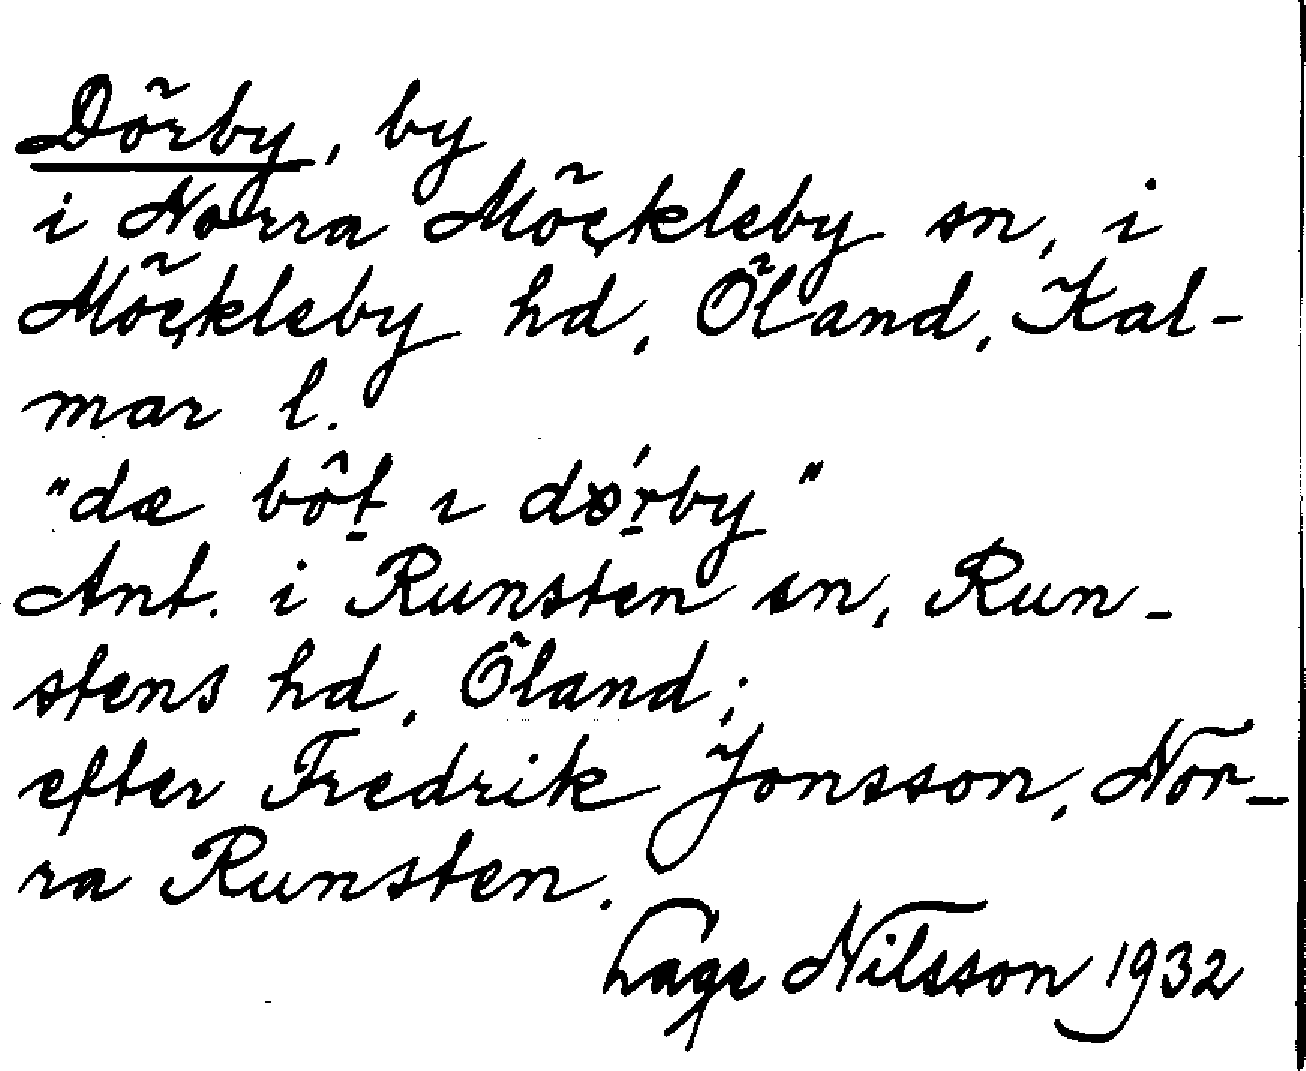 Dörby, by
i Norra Möckleby sn, i
Möckleby hd, Öland, Kal-
mar l.
"dæ bôt ı dǿrby"
Ant. i Runsten sn, Run-
stens hd, Öland;
efter Fredrik Jonsson, Nor-
ra Runsten.
Lage Nilsson 1932